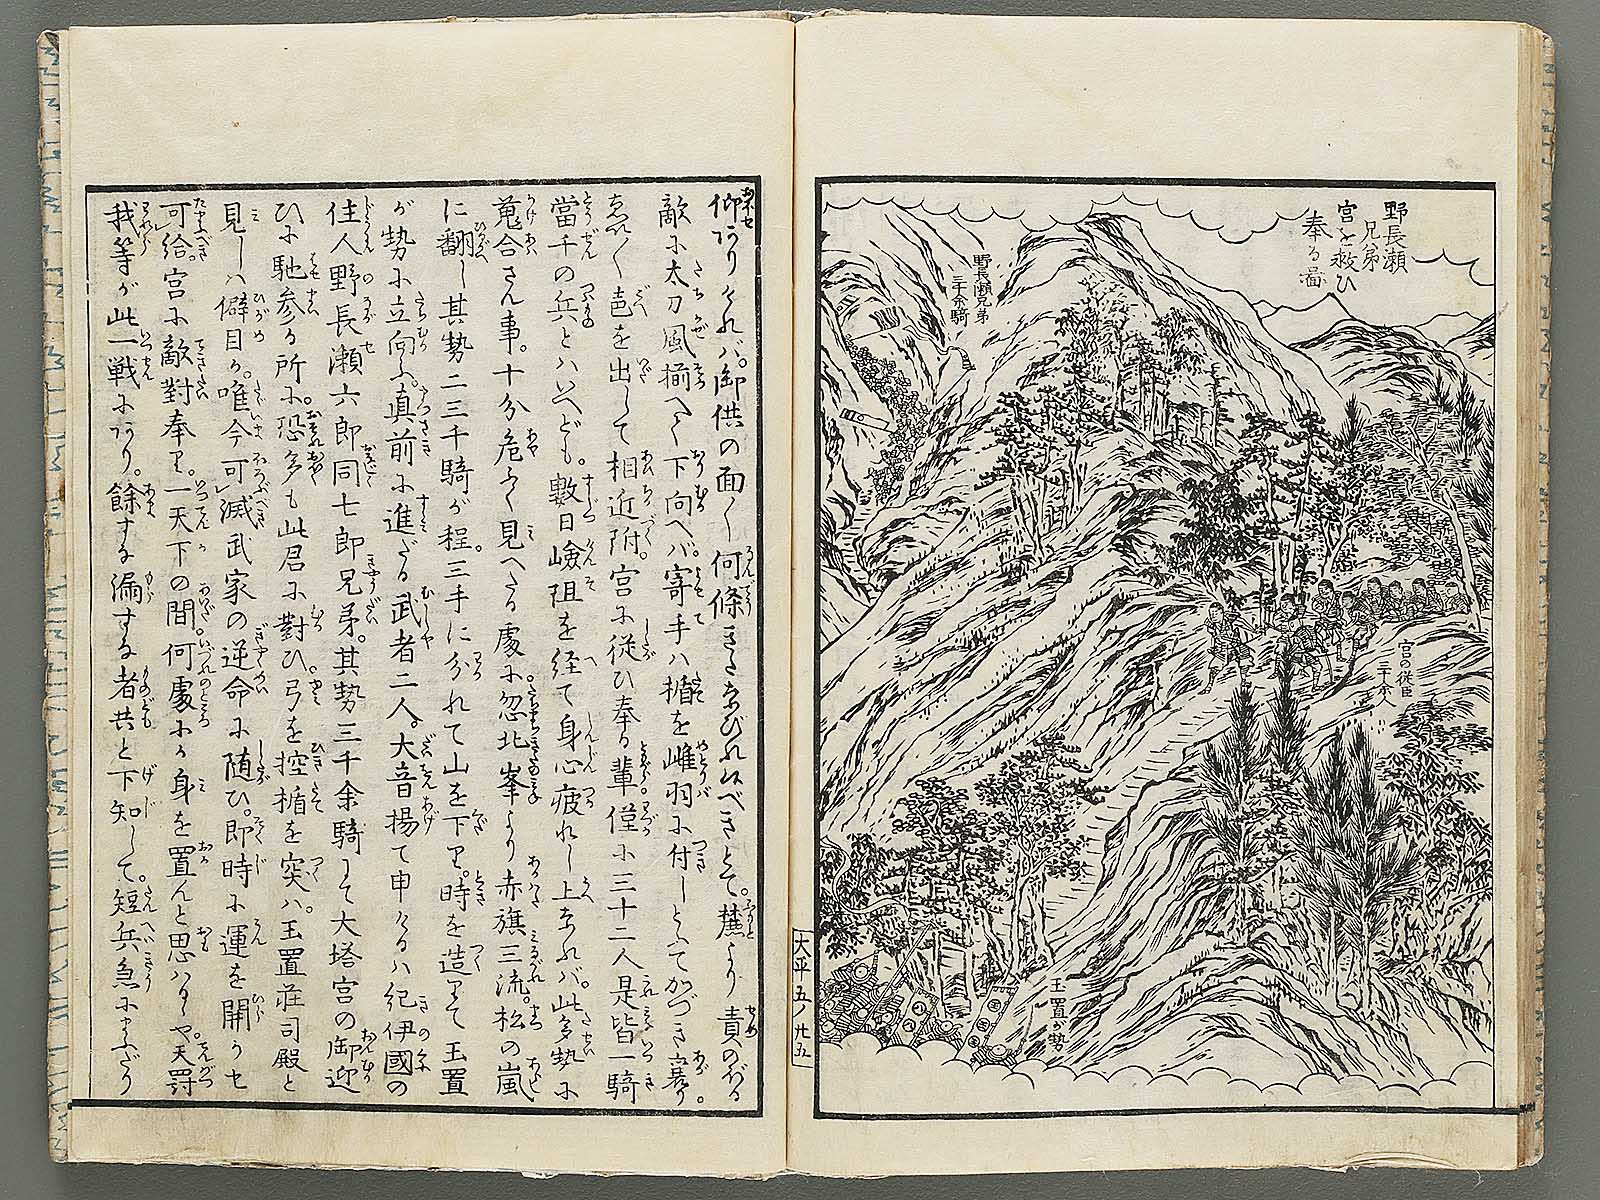 野長瀬
兄弟
宮を救ひ
奉る圖
野長瀬兄弟
三千余騎
宮の従臣
三十余人
玉置が勢
太平五ノ廿五
仰ありければ。御供の面〻何條さたなびれ候べきとて。麓より責のぼる
敵に太刀風揃へて下向へバ。寄手ハ楯を雌羽に付しとゝてかづき寄り。
忽〻色を出して相近附。宮に従ひ奉る輩僅に三十二人是皆一騎
當千の兵とハいへども。數日嶮阻を経て身心疲れし上なれバ。此多勢に
蒐合さん事。十分危ふく見へたる處に。忽北峯より赤旗三流。松の嵐
に翻し其勢二三千騎が程。三手に分れて山を下り。時を造りて玉置
が勢に立向ふ。真前に進だる武者二人。大音揚て申けるハ紀伊國の
住人野長瀬六郎同七郎兄弟。其勢三千余騎にて大塔宮の御迎
ひに馳参る所に。恐多も此君に對ひ。弓を控楯を突ハ。玉置荘司殿と
見しハ僻目か。唯今可滅武家の逆命に随ひ。即時に運を開かせ
可給宮に敵對奉り。一天下の間何處にか身を置んと思ハるゝや。天罸
我等が此一戦にあり。餘すな漏すな者共と下知して。短兵急にまふだり